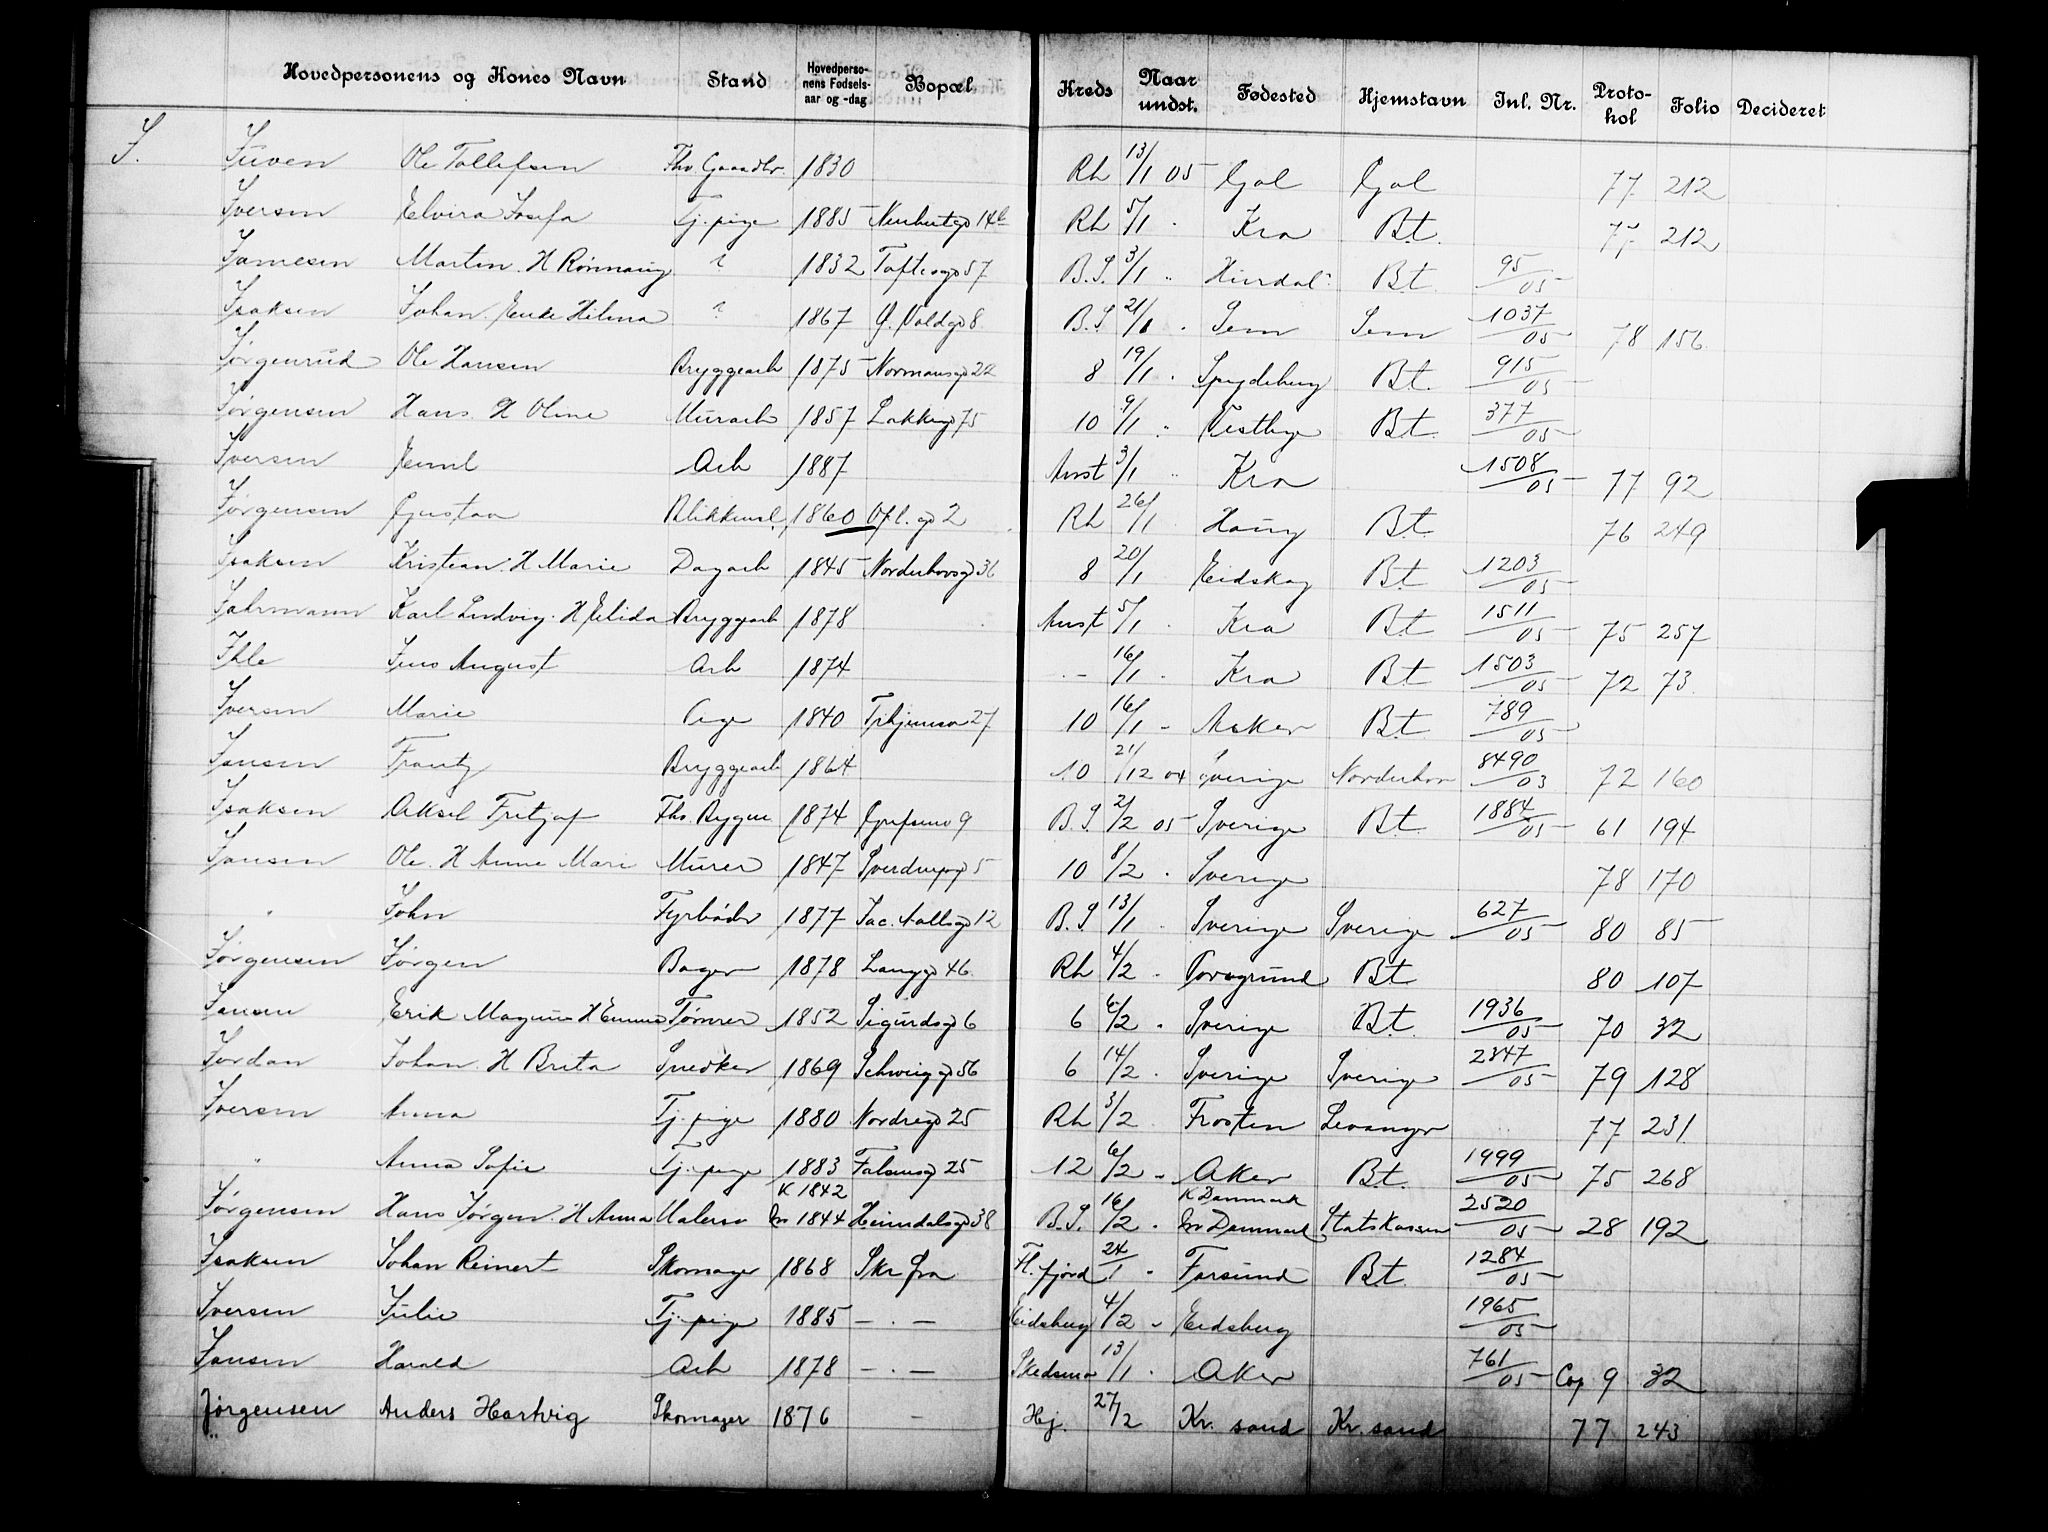 Hovedpersonens og Kones Navn Stand Hovedperso-nens Fødsels-aar og -dag Bopæl Kreds Naar undst. Fødested Hjemstavn Inl. Nr. Proto-kol Folio Decideret
J. Ole Tollefsen Fhv. Gaardbr. 1830 Rh 13/1 05 Gol Gol 77 212
Iversen Elvira Josefa Tj. pige 1885 14b Rh 5/1 . Kra Bt. 77 212
Jamesen Martin. H ? 1832 Toftesgd 57 B.S. 3/1 " Hurdal Bt. 95/05
Isaksen Johan. Enke Hilma ? 1867 8 B.S. 21/1 . Sem Sem 1037/05 78 156
Jørgenrud Ole Hansen Bryggearb 1875 Normansgd 22 8 19/1 . Spydeberg Bt. 915/05
Jørgensen Hans. H Oline Murarb 1857 Lakkegd 75 10 9/1 " Vestbye Bt. 377/05
Iversen Emil Arb 1887 Anst 3/1 " Kra 1508/05 77 92
Jørgensen Gustav Blikkensl. 1860 2 Rh 26/1 Haug Bt. 76 249
Isaksen Kristian. H Marie Dagarb 1845 Norderhovsgd 36 8 20/1 Eidskog Bt 1203/05
Jahrmann Karl Ludvig. H Elida Bryggearb 1878 Anst 5/1 . Kra Bt 1511/05 75 257
Ihle Jens August Arb 1874 - 16/1 . Kra Bt 1503/05 72 73
Iversen Marie 1840 27 10 16/1 - Asker Bt. 789/05
Jansen Frantz Bryggearb 1864 10 21/12 04 Sverige Norderhov 8490/03 72 160
Isaksen Aksel Fritjof 1874 9 B.S. 2/2 05 Sverige Bt 1884/05 61 194
Jansen Ole. H Anne Mari Murer 1847 Sverdrupsgd 5 10 8/2 . Sverige 78 170
" John Fyrbøder 1877 Jac. Aallsgd 12 B.S 13/1 . Sverige Sverige 627/05 80 85
Jørgensen Jørgen Bager 1878 Langgd 46 Rh 4/2 . Porsgrund Bt 80 107
Jansen Erik Magnus H Emma Tømrer 1852 Sigurdsgd 6 6 6/2 . Sverige Bt. 1936/05 70 32
Jordan Johan. H Brita Snedker 1869 Schweigdsgd 56 6 14/2 . Sverige Sverige 2347/05 79 128
Iversen Anna Tj. pige 1880 Nordregd 25 Rh 3/2 . Frosten Levanger 77 231
" Anna Sofie Tj. pige 1883 Falsensgd 25 12 6/2 . Aker Bt. 1999/05 75 268
K 1842 K Danmark
Jørgensen Hans Jørgen. H Anna Malersv M 1844 Heimdalsgd 38 B.S. 16/2 . M Danmark Statskassen 2520/05 28 192
Isaksen Johan Reinert Skomager 1868 Skr fra Fl. fjord 24/1 . Farsund Bt. 1284/05
Iversen Julie Tj. pige 1885 - . - Eidsberg 4/2 . Eidsberg 1965/05
Jansen Harald Arb 1878 - . - Skedsmo 13/1 . Aker 761/05 Cop 9 32
Jørgensen Anders Hartvig Skomager 1876 - Hej. 27/2 Kr. sand Kr. sand 77 243